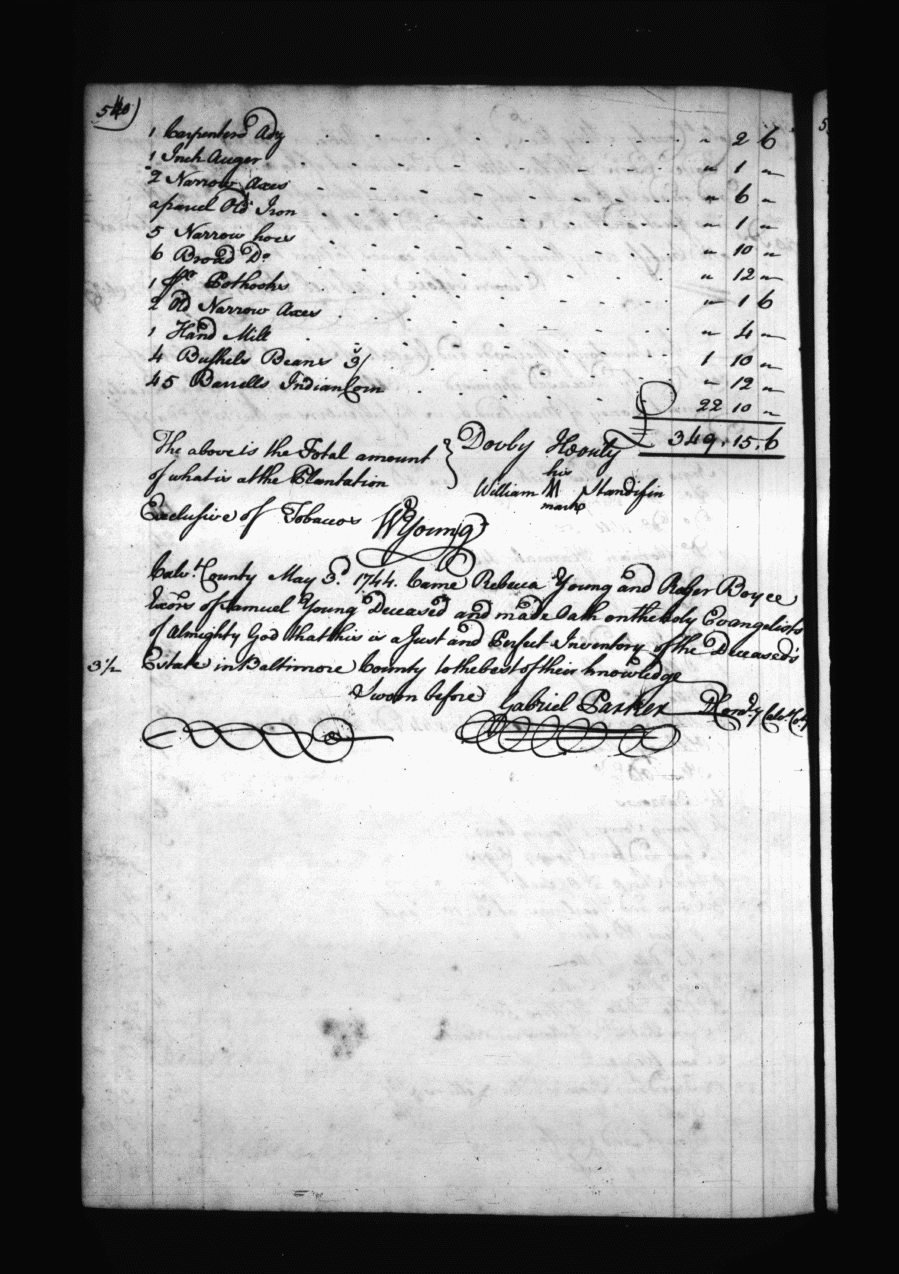 540)
1 Carpenters Adz " 2 6
1 Inch Auger " 1 "
2 Narrow Axes " 6 "
a parcel Old Iron " 1 "
5 Narrow hoes " 10 "
6 Broad Do " 12 "
1 pr Pothooks " 1 6
2 Old Narrow Axes " 4 "
1 Hand Mill 1 10 "
4 Bushels Beans 3/ " 12 "
45 Barrells Indian Corn 22 10 "
£ 349. 15. 6
The above is the Total amount } Dovby
of what is at the Plantation his
William M Standifin
Exclusive of Tobaccos mark
W Young
Calvt. County May 3d. 1744. Came Rebecca Young and Roger Boyce
Exors of Samuel Young Deceased and made Oath on the holy Evangelists
of Almighty God that this is a Just and Perfect Inventory of the Deceased's
3½ Estate in Baltimore County to the best of their knowledge
Sworn before Gabriel Parker